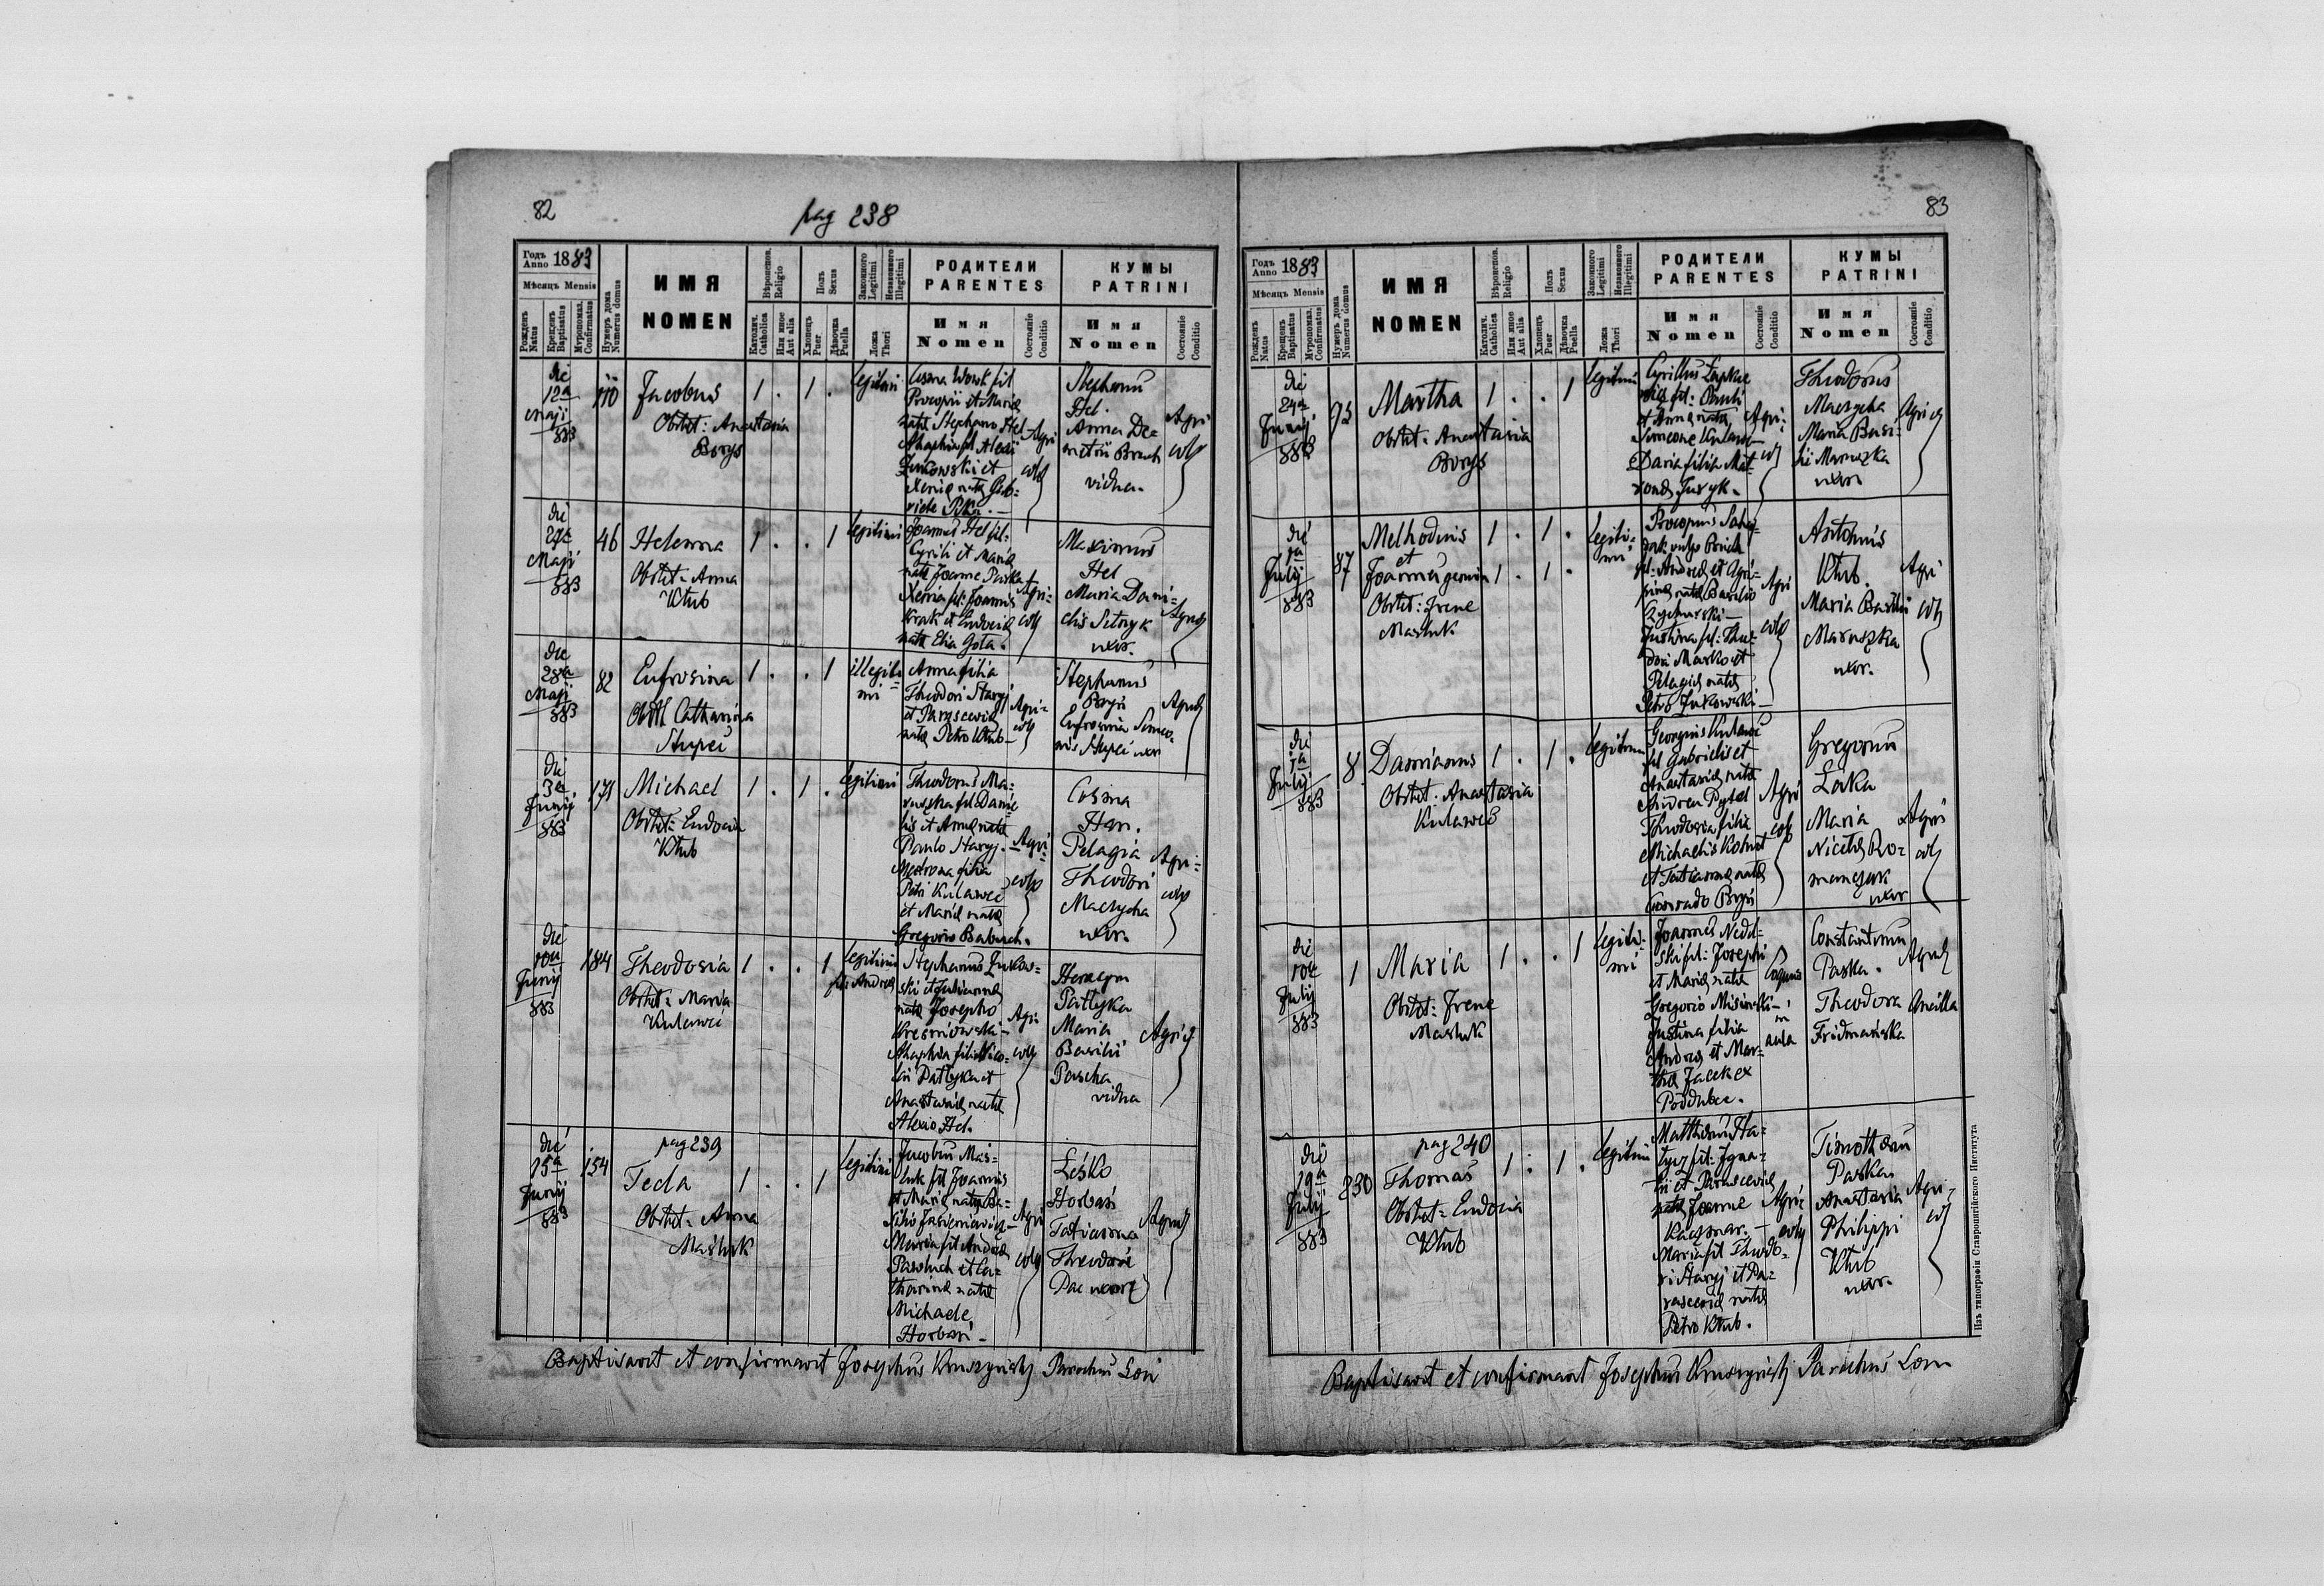 82
pag 238
Годъ Anno 1883
Мѣсяцъ Mensis
Рожденъ Natus
Крещенъ Baptisatus
Муропомаз. Confirmatus
Нумеръ дома Numerus domus
ИМЯ
NOMEN
Вѣроиспов. Religio
Католич. Catholica
Или иное Aut alia
Полъ Sexus
Хлопецъ Puer
Дѣвочка Puella
Законного Legitimi
Незаконного Illegitimi
Ложа Thori
РОДИТЕЛИ
PARENTES
Имя
Nomen
Состояніе Conditio
КУМЫ
PATRINI
Имя
Nomen
Состояніе Conditio
die
12a
Maji
883
110
Jacobus
Obstet: Anastasia
Borys
1 . 1 .
legitimi
Cosma Wowk fil
Procopii et Mariae
natae Stephano Hel
Żukowski et
Agri
colae
Stephanus
Hel.
Anna De=
metrii
vidua.
Agri
colae
die
27a
Maji
883
46
Helenna
Obstet: Anna
Kłub
1 . . 1
legitimi
Joannes Hel fil:
Cyrili et Mariae
natae Joanne Paska
Xenia fil: Joannis
Krak et Eudociae
natae Elia Gola.
Agri=
colae
Maximus
Hel
Maria Dani=
elis
uxor.
Agricolae
die
28a
Maji
883
82
Eufrosina
Obst Catharina
Stupci
1 . . 1
illegiti=
mi
Anna filia
Theodori Staryj
et Parasceviae
natae Petro Kłub
Agri=
colae
Stephanus
Bryś
Eufrosina Simeo=
nis Stupci uxor
Agricolae
die
3a
Junij
883
171
Michael
Obstet: Eudocia
Kłub
1 . 1 .
legitimi
Theodorus Ma=
ruszka fil Danie=
lis et Annae natae
Paulo Staryj.
filia
Petri Kulawec
et Mariae natae
Gregorio Babiach.
Agri=
colae
Cosma
Han.
Pelagia
Theodori
Maczycha
uxor.
Agri=
colae
die
10a
Junij
883
184
Theodosia
Obstet: Maria
Kulawci
1 . . 1
legitimi
fil: Andreae
Stephanus Żukow=
ski et Julianae
natae Josepho
filia Nico=
lai Patlyka et
Anastasiae natae
Alexio Hel.
Agri
colae
Patlyka
Maria
Basilii
Pascha
vidua
Agricolae
die
15a
Junij
883
154
pag 239
Tecla
Obstet: Anna
Maśluk
1 . . 1
legitimi
Jacobus Maś=
luk fil Joannis
et Mariae natae Ba=
silio Jasieniewicz
Maria fil Andreae
Pawluch et Ca=
tharinae natae
Michaele
Horbań
Agri
colae
Leśko
Horbań
Tatianna
Theodori
Pac uxor
Agricolae
Baptisavit et confirmavit Josephus Kruszyński Parochus Loci
83
Годъ Anno 1883
Мѣсяцъ Mensis
Рожденъ Natus
Крещенъ Baptisatus
Муропомаз. Confirmatus
Нумеръ дома Numerus domus
ИМЯ
NOMEN
Вѣроиспов. Religio
Католич. Catholica
Или иное Aut alia
Полъ Sexus
Хлопецъ Puer
Дѣвочка Puella
Законного Legitimi
Незаконного Illegitimi
Ложа Thori
РОДИТЕЛИ
PARENTES
Имя
Nomen
Состояніе Conditio
КУМЫ
PATRINI
Имя
Nomen
Состояніе Conditio
die
24a
Junij
883
95
Martha
Obstet: Anastasia
Borys
1 . . 1
legitimi
Cyrillus
fil: Pauli
et Annae natae
Simeone Kulawec
Daria filia Mat=
ronae Juryk.
Agri=
colae
Theodorus
Maczycha
Maria Basi=
lii Maruszka
uxor
Agricolae
die
1a
Julij
883
87
Methodius
et
Joannes gemini
Obstet: Irene
Maśluk
1 . 1 .
1 . 1 .
legiti=
mi
Procopius
vulgo
fil: Andreae et Agri=
pinae natae Basilio
Justina fil: Theo=
dori Marko et
Pelagiae natae
Petro Żukowski
Agri
colae
Antonius
Kłub.
Maria Basilii
Maruszka
uxor.
Agri
colae
die
1a
Julij
883
8
Damianus
Obstet: Anastasia
Kulawec
1 . 1 .
legitimi
Georgius Kulawec
fil Gabrielis et
Anastasiae natae
Andrea Pytel
Theodosia filia
Michaelis
et Tatiannae natae
Conrado Bryś
Agri
colae
Gregorius
Łaka
Maria
Nicetae Ro=
manczuk
uxor
Agri
colae
die
10a
Julij
883
1
Maria
Obstet: Irene
Maśluk
1 . . 1
legiti=
mi
Joannes
fil: Josephi
et Mariae natae
Gregorio
Justina filia
Andreae et Mar=
thae Jacek ex
Poddubce.
in
aula
Constantinus
Paska.
Theodora
Fridmańska
Agricolae
Ancilla
die
19a
Julij
883
230
pag 240
Thomas
Obstet: Eudocia
Kłub
1 . 1 .
legitimi
Matthaeus
fil: Igna=
tii et Parasceviae
natae Joanne
Kaczmar.
Maria fil Theodo=
ri Staryj et Pa=
rasceviae natae
Petro Kłub.
Agri
colae
Timotheus
Paska
Anastasia
Philippi
Kłub
uxor.
Agri=
colae
Baptisavit et confirmavit Josephus Kruszyński Parochus Loci
Изъ типографіи Ставропигійского Института